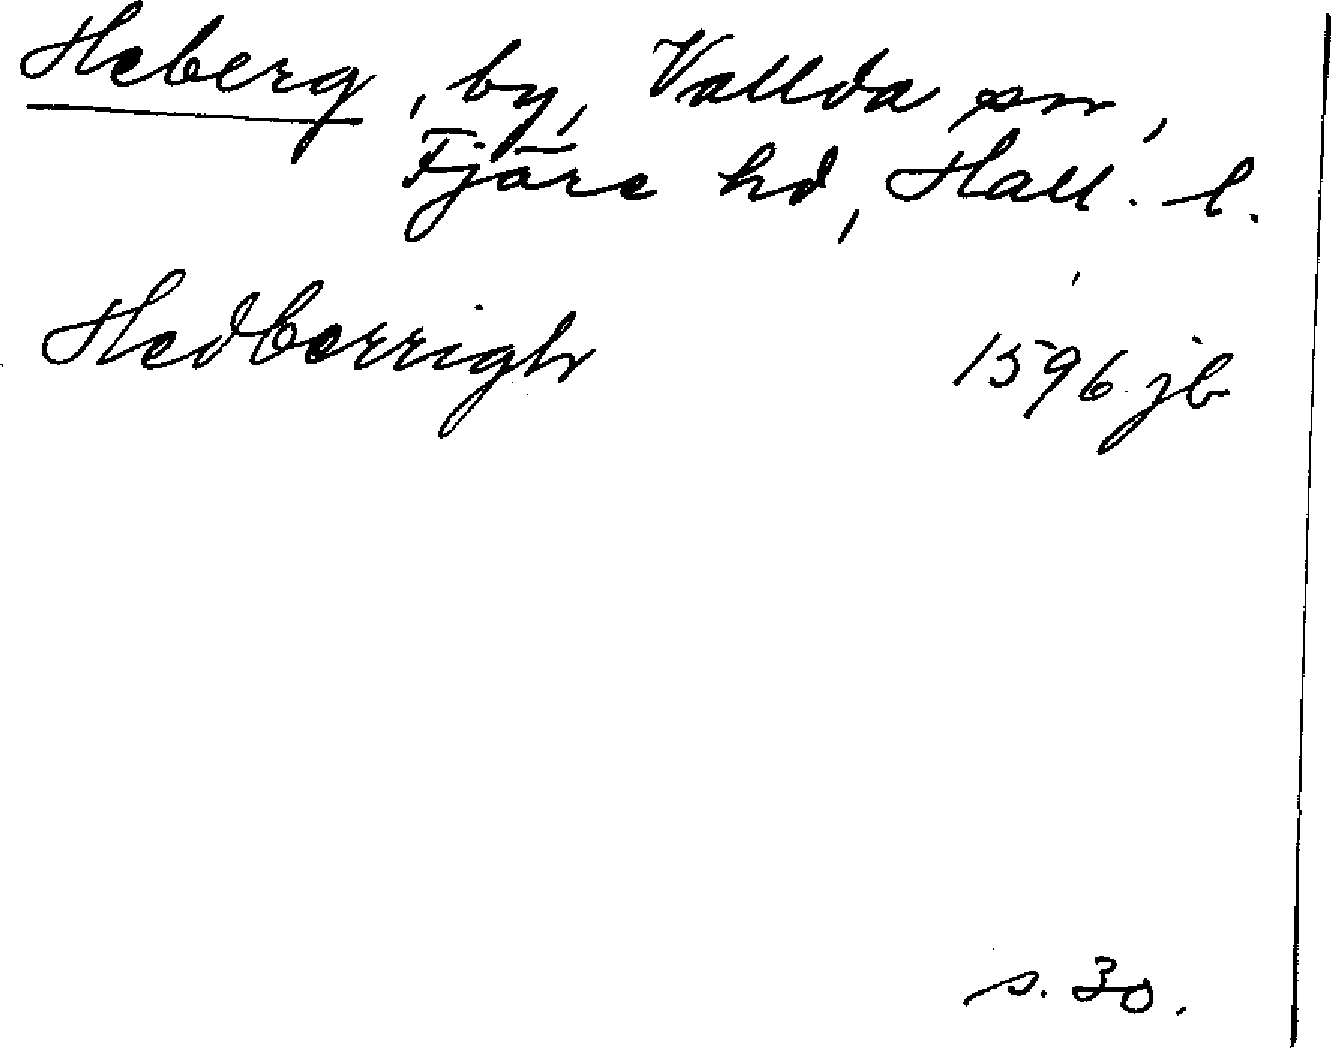 Heberg, by, Vallda sn,
Fjäre hd, Hall. l.
Hedberrigh 1596 jb
s. 30.